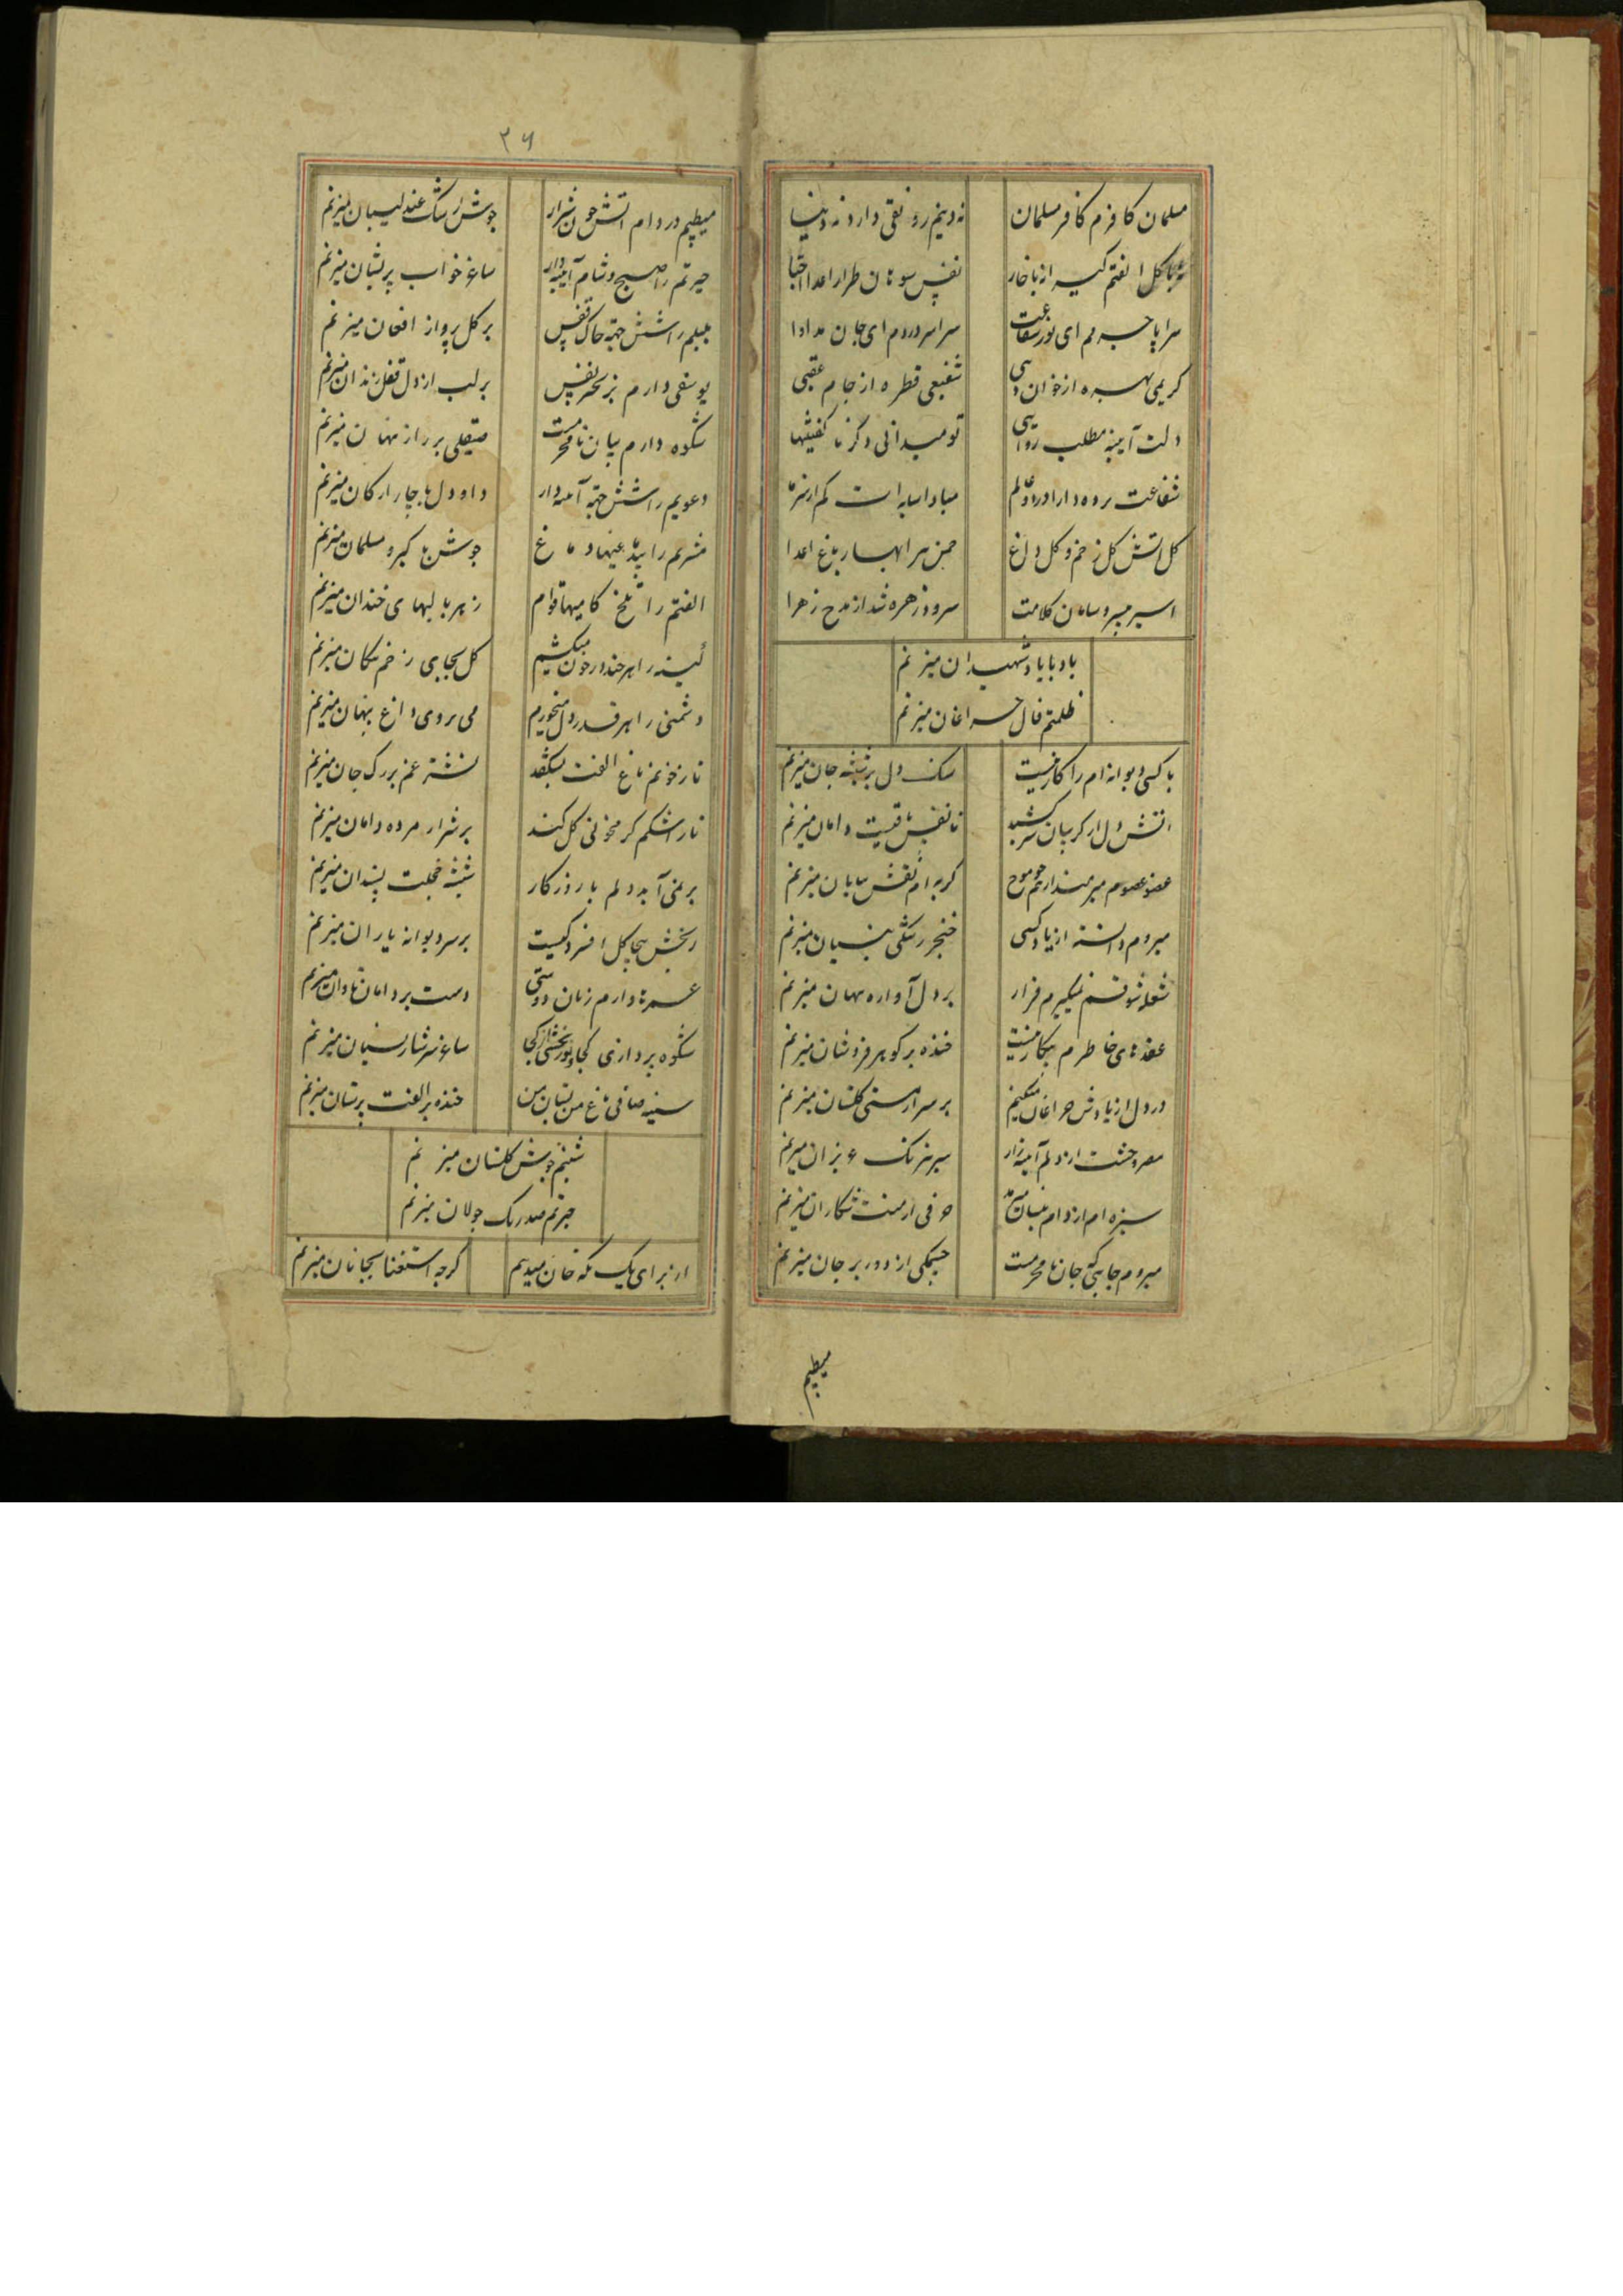 مسلمان کافرم کافر مسلمان نه دینم رونقی دارد نه دنیا
گل الفتم گیر از با خار نفس سوهان طرار اعدا احبا
سراپا جرمم ای نور شفاعت سراسر دردم ای جان مداوا
کریمی بهره از خوان شفیعی قطره از جام عقبی
دلت آیینه مطلب تو میدانی دگر ناگفتنیها
شفاعت مبادا سایه است کم از سر ما
گل آتش گل زخم و گل داغ چمن پیرا بهار باغ اعدا
اسیر بی سر و سامان کلامت سرود زهره شد از مدح زهرا
باد با یاد شهیدان میزنم
ظلمتم فال چراغان میزنم
با کسی دیوانه ام را کار نیست سنگ دل بر شیشه جان میزنم
آتش دل از گریبان سر کشید تا نفس باقیست دامان میزنم
عضو عضوم گریه ام نقش بیابان میزنم
میروم دانسته از یاد کسی خنجر رشکی بنسیان میزنم
شعله شوقم نمیگیرم قرار بر دل آواره بهتان میزنم
عقدهای خاطرم بیکار نیست خنده بر گوهر فروشان میزنم
در دل از یادش چراغان میکنم بر سر از مستی گلستان میزنم
مصر وحشت از دلم آیینه زار سر بسر نیرنگ عزیزان میزنم
سبزه ام از دام حرفی از منت شکاران میزنم
میروم جایی که جان نامحرمست چشمکی از دور بر جان میزنم
میطپم
۲۶
میطپم در دام آتش چون شرار جوش رشک عندلیبان میزنم
حیرتم را صبح و شام آیینه دار ساغر خواب پریشان میزنم
بلبلم را شش جهة چاک قفس بر گل پرواز افغان میزنم
یوسفی دارم بزنجیر نفس بر لب از دل قفل زندان میزنم
شکوه دارم بیان نامحرمست صیقلی بر راز پنهان میزنم
دعویم را شش جهة آینه دار داو دل با چار ارکان میزنم
مشربم را بیدماغیها دماغ جوش با گبر و مسلمان میزنم
الفتم را تلخ کامیها قوام زهر با لبهای خندان میزنم
کینه را هر چند در خون میکشم گل بجای زخم پیکان میزنم
دشمنی را هر قدر دل میخورم می بروی داغ پنهان میزنم
تا ز خونم باغ الفت بشکفد نشتر غم بر رگ جان میزنم
تا ز اشکم گرم خونی گل کند بر شرار مرده دامان میزنم
بر نمی آید دلم با روزگار شیشه خجلت بسندان میزنم
رنجش بیجا گل افسردگیست بر سر دیوانه یاران میزنم
عمرها دارم زبان دوستی دست بر دامان نادان میزنم
شکوه پردازی کجا و رنجش از کجا ساغر سرشار نسیان میزنم
سینه صافی باغ من بستان من خنده بر الفت پرستان میزنم
شبنم جوش گلستان میزنم
حیرتم صد رنگ جولان میزنم
از برای یک نگه جان میدهم گرچه استغنا بجانان میزنم